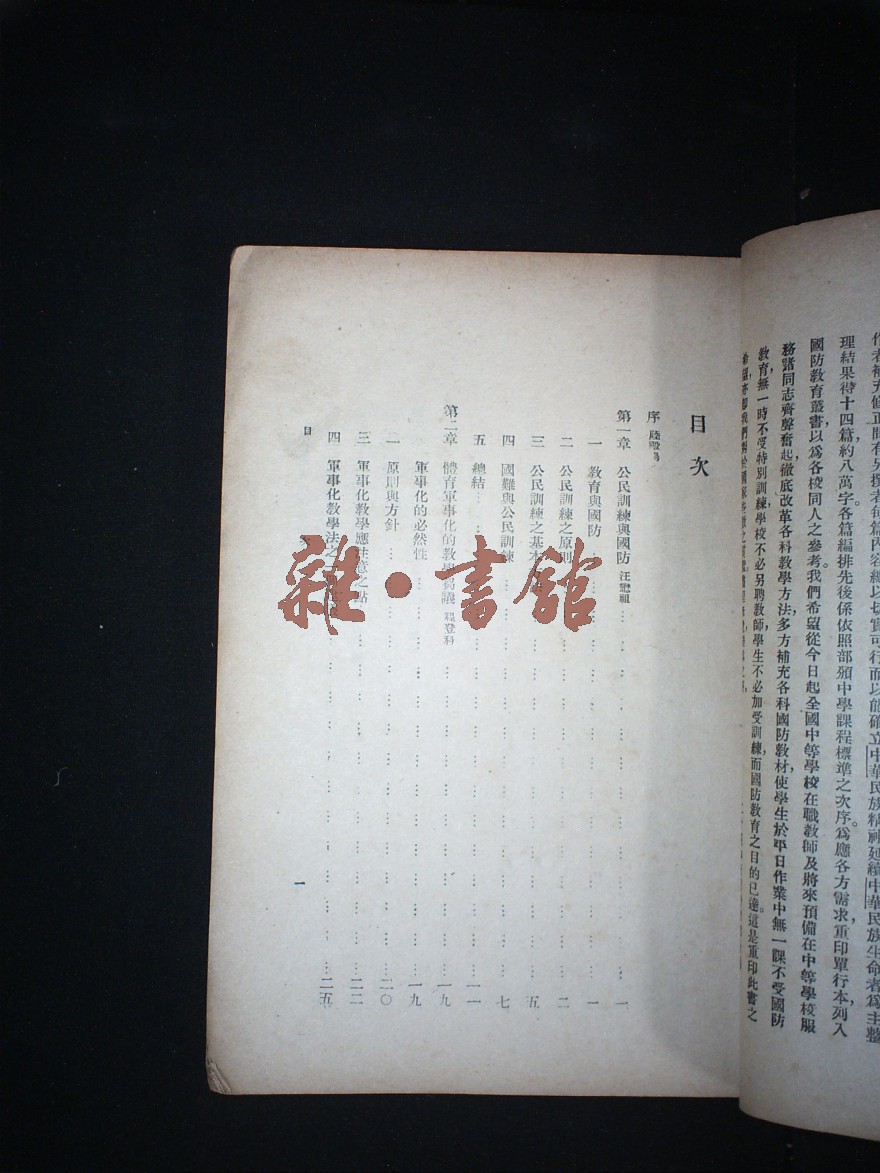 作者補充修正間有另撰者每篇內容總以切實可行而以能確立中華民族精神延續中華民族生命者爲主整
理結果得十四篇，約八萬字各篇編排先後係依照部頒中學課程標準之次序。爲應各方需求重印單行本，列入
國防敎育叢書，以爲各校同人之參考。我們希望從今日起全國中等學校在職敎師及將來預備在中等學校服
務諸同志齊聲奮起，徹底改革各科敎學方法，多方補充各科國防敎材，使學生於平日作業中無一課不受國防
敎育，無一時不受特別訓練，學校不必另聘敎師，學生不必加受訓練，而國防敎育之目的已達。這是重印此書之
希望
目次
序
第一章 公民訓練與國防 汪懋祖 … 一
一 敎育與國防 … 一
二 公民訓練之原則 … 二
三 公民訓練之基本 … 五
四 國難與公民訓練 … 七
五 總結 … 一一
第二章 體育軍事化的敎學芻議 程登科 … 一九
軍事化的必然性 … 一九
一 原則與方針 … 二〇
三 軍事化敎學應注意之點 … 二二
四 軍事化敎學法之 … 二五
目
一
雜·書館